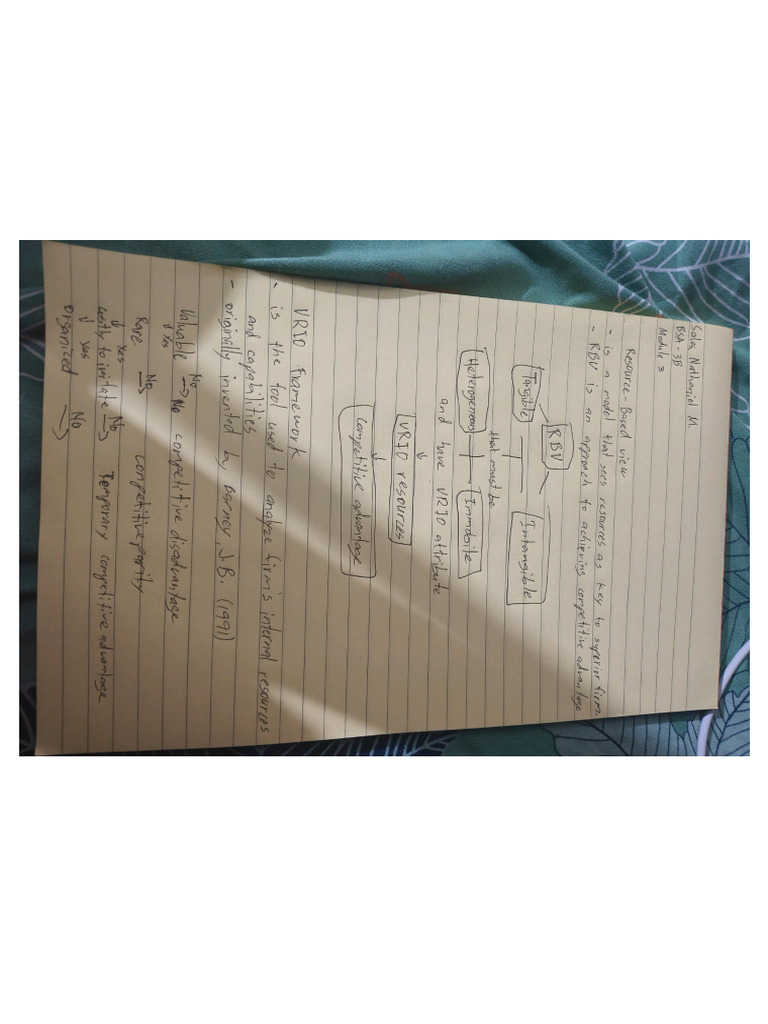 Sales, Nathaniel M.
BSA - 3B
Module 3
Resource - Based view
- is a model that sees resources as key to superior firm.
- RBV is an approach to achieving competitive advantage
RBV
Tangible Intangible
that must be
Heterogeneous Immobile
and have VRIO attribute
↓
VRIO resources
↓
Competitive advantage
VRIO Framework
- is the tool used to analyze firm's internal resources
and capabilities
- originally invented by Barney, J.B. (1991)
Valuable No → competitive disadvantage
↓ Yes
Rare No → competitive parity
↓ Yes
Costly to imitate No → Temporary competitive advantage
↓ Yes
Organized No →